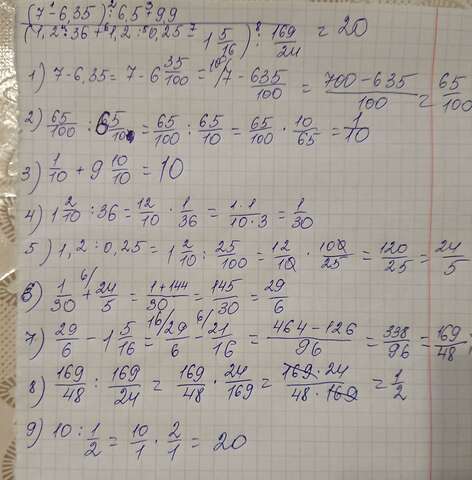 (7-6,35):6,5+9,9
(1,2:36+1,2:0,25-1 5/16):169/24 = 20
1) 7-6,35=7-6 35/100=7-635/100=700-635/100=65/100
2) 65/100:65/10=65/100:65/10=65/100·10/65=1/10
3) 1/10+9 10/10=10
4) 1 2/10:36=12/10·1/36=1·1/10·3=1/30
5) 1,2:0,25=1 2/10:25/100=12/10·100/25=120/25=24/5
6) 1/30+24/5=1+144/30=145/30=29/6
7) 29/6-1 5/16=29/6-21/16=464-126/96=338/96=169/48
8) 169/48:169/24=169/48·24/169=169·24/48·169=1/2
9) 10:1/2=10/1·2/1=20